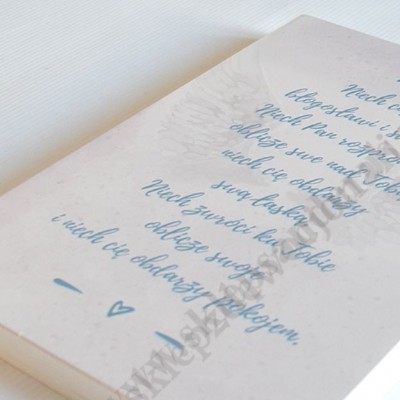 Niech
błogosławi i
Niech Pan
oblicze swe nad Tobą
niech cię obdarzy
swą łaską.
Niech zwróci ku Tobie
oblicze swoje
i niech cię obdarzy pokojem.